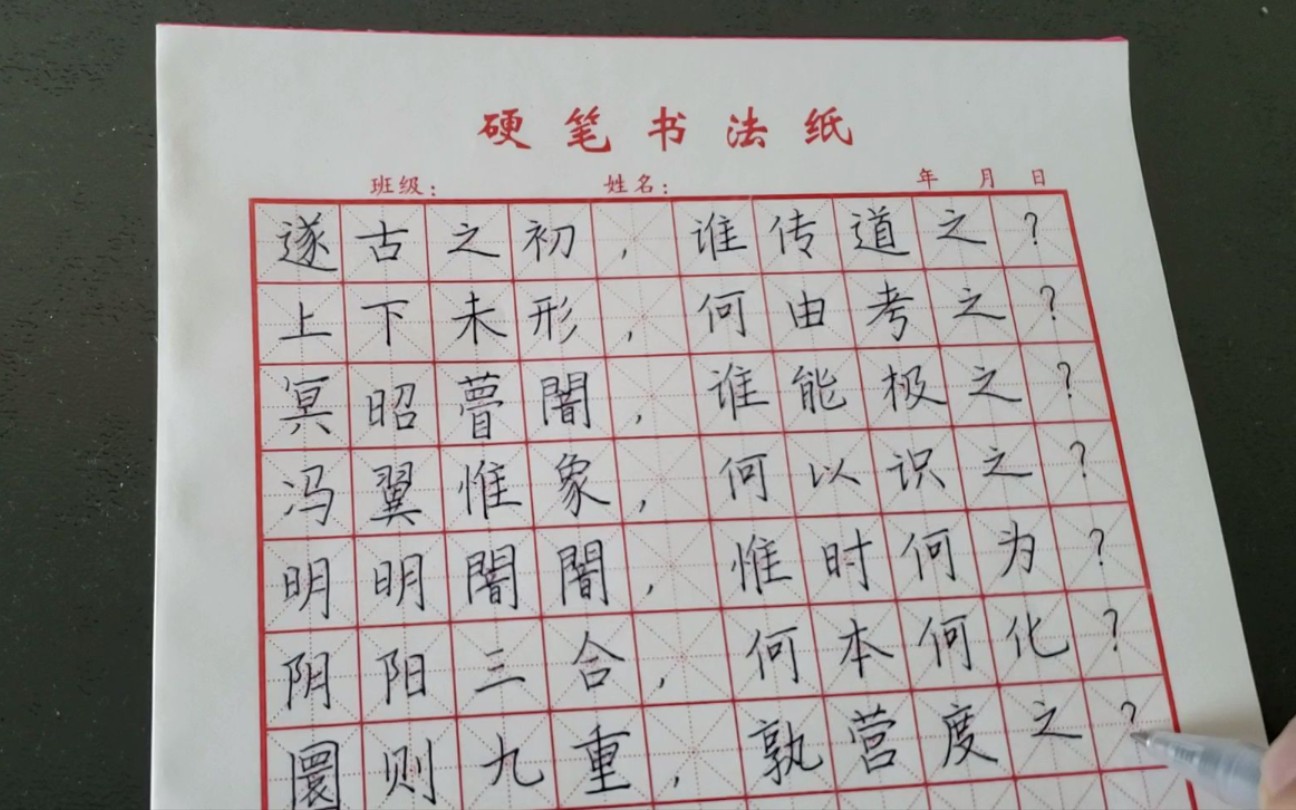 硬笔书法纸
班级： 姓名： 年 月 日
遂古之初，谁传道之？
上下未形，何由考之？
冥昭瞢闇，谁能极之？
冯翼惟象，何以识之？
明明闇闇，惟时何为？
阴阳三合，何本何化？
圜则九重，孰营度之？